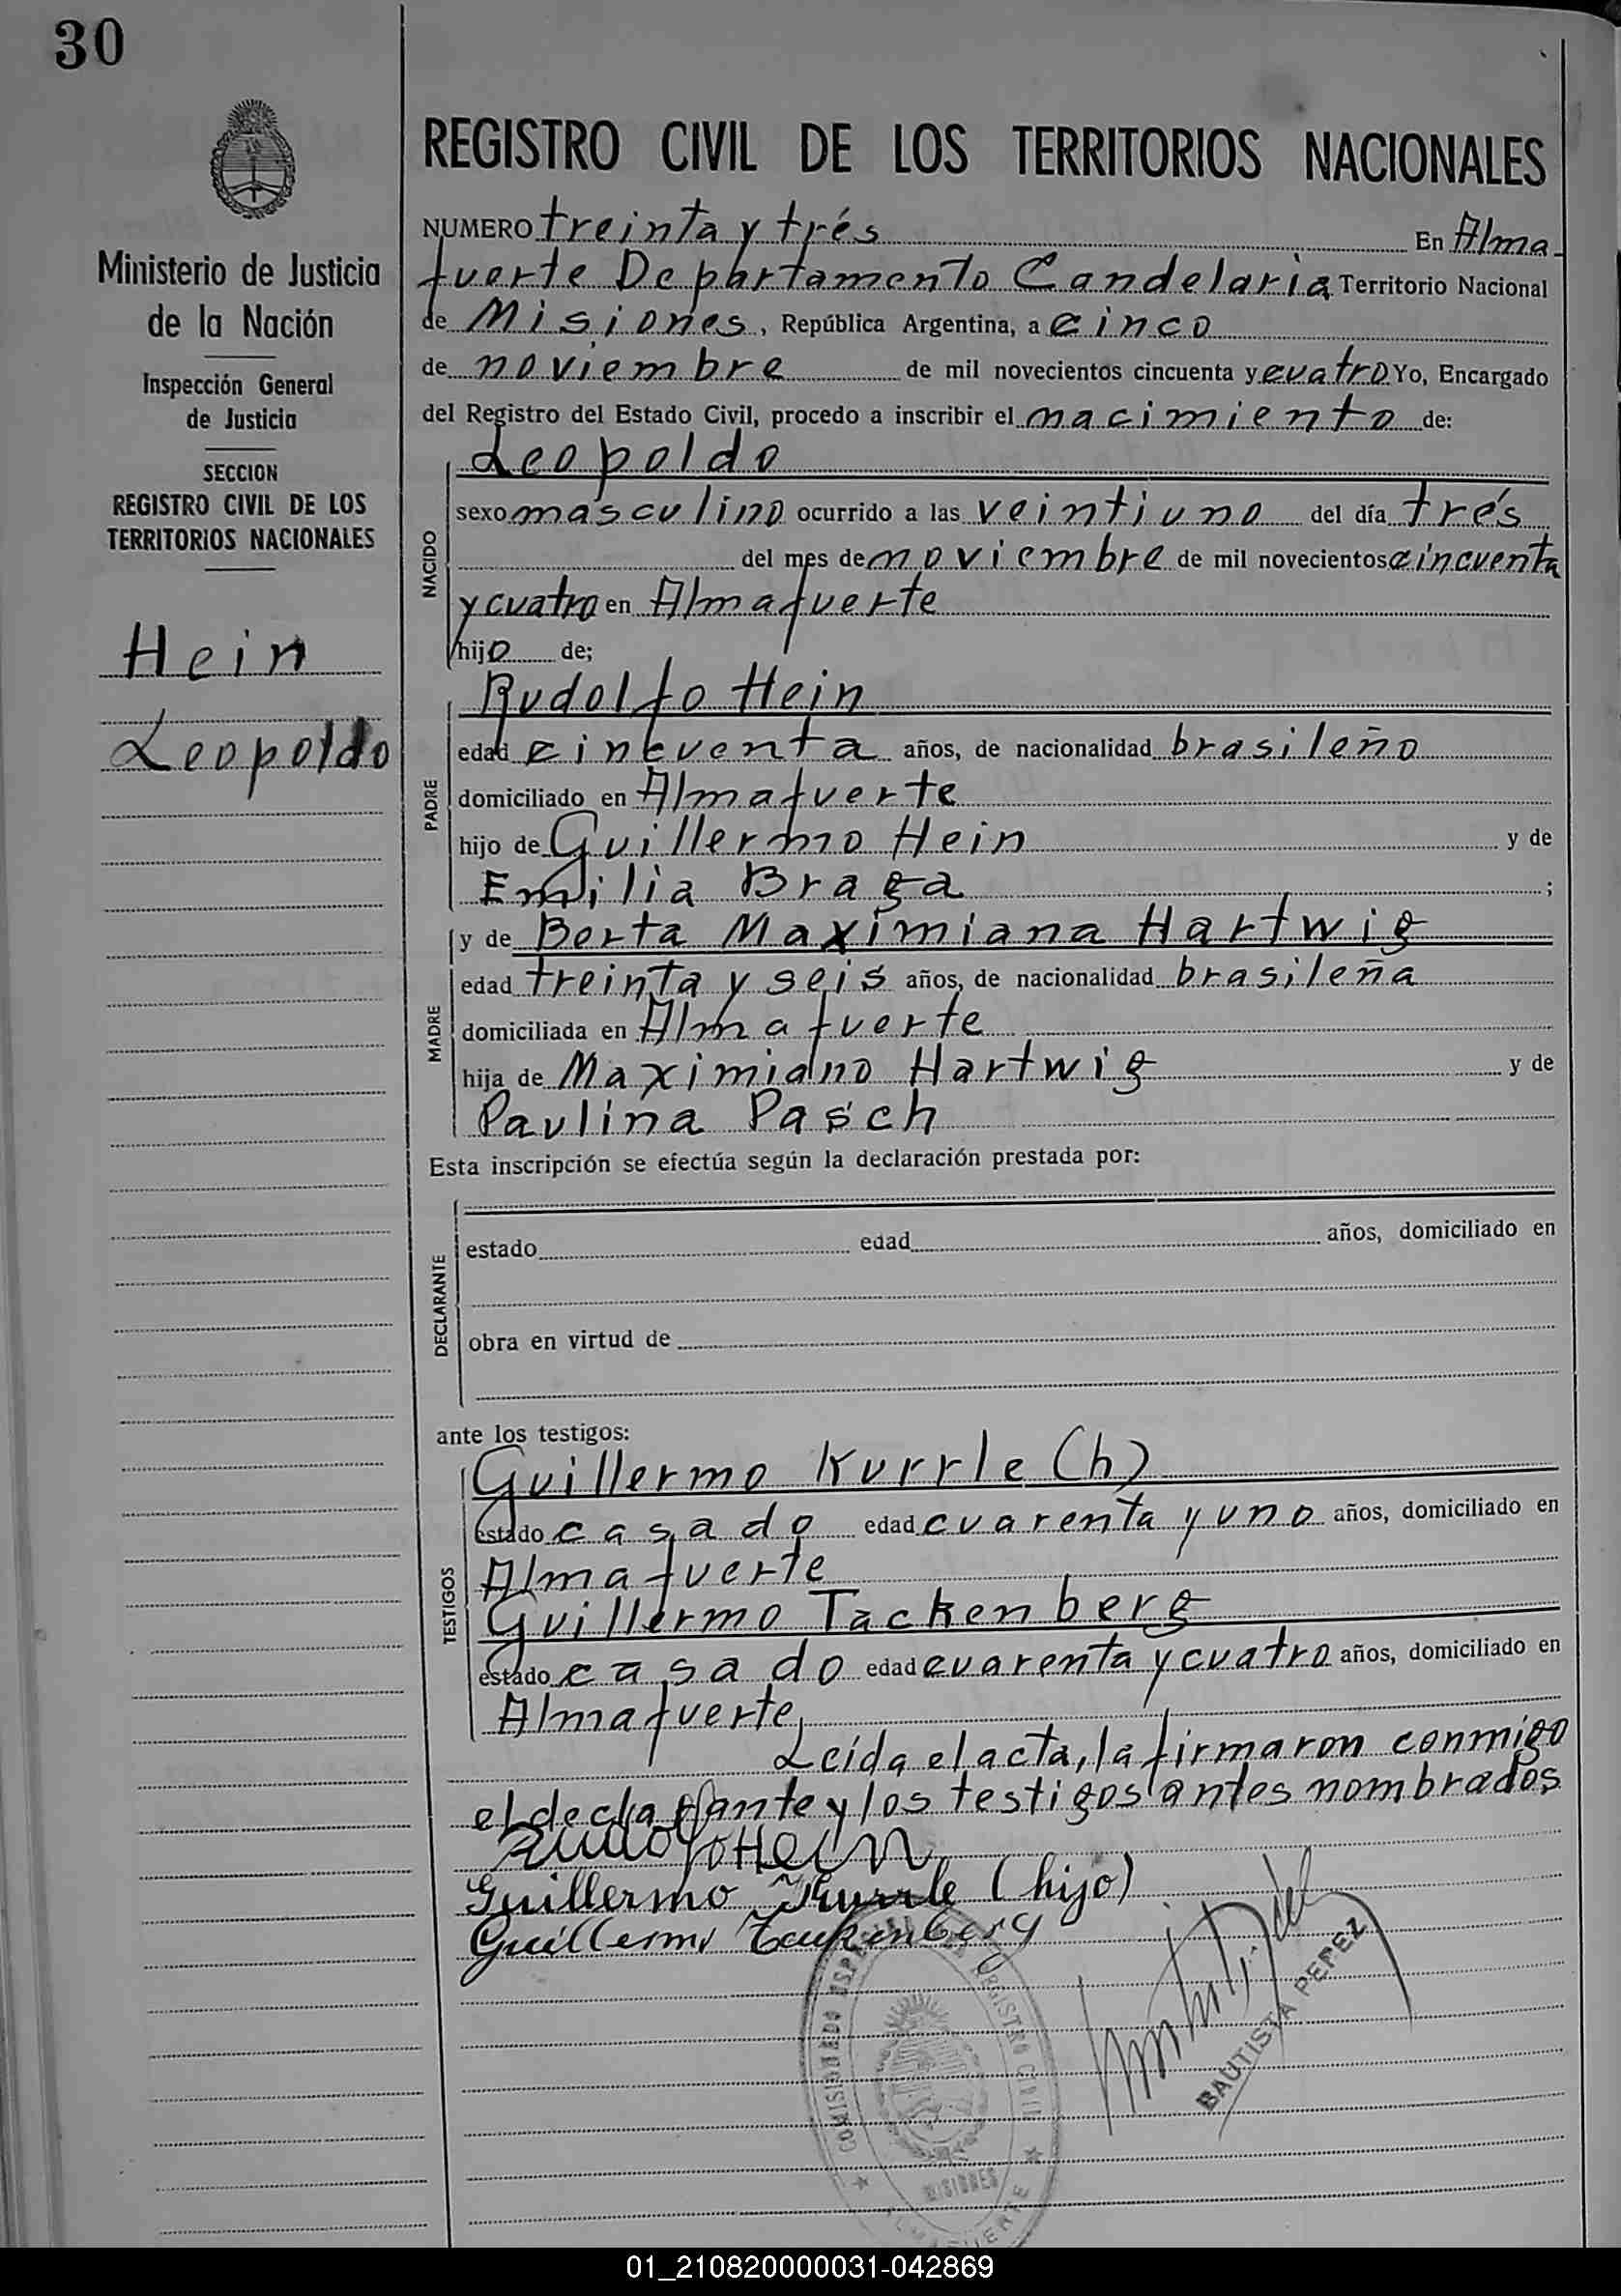 30
REGISTRO CIVIL DE LOS TERRITORIOS NACIONALES
Ministerio de Justicia
de la Nación
Inspección General
de Justicia
SECCION
REGISTRO CIVIL DE LOS
TERRITORIOS NACIONALES
Hein
Leopoldo
NUMERO treinta y trés En Alma
fuerte Departamento Candelaria Territorio Nacional
de Misiones, República Argentina, a cinco
de noviembre de mil novecientos cincuenta y cuatro Yo, Encargado
del Registro del Estado Civil, procedo a inscribir el nacimiento de:
NACIDO
Leopoldo
sexo masculino ocurrido a las veintiuno del día trés
del mes de noviembre de mil novecientos cincuenta
y cuatro en Almafuerte
hijo de;
PADRE
Rudolfo Hein
edad cincuenta años, de nacionalidad brasileño
domiciliado en Almafuerte
hijo de Guillermo Hein y de
Emilia Braga ;
MADRE
y de Berta Maximiana Hartwig
edad treinta y seis años, de nacionalidad brasileña
domiciliada en Almafuerte
hija de Maximiano Hartwig y de
Paulina Pasch
Esta inscripción se efectúa según la declaración prestada por:
DECLARANTE
estado edad años, domiciliado en
obra en virtud de
ante los testigos:
TESTIGOS
Guillermo Kurrle (h)
estado casado edad cuarenta y uno años, domiciliado en
Almafuerte
Guillermo Tackenberg
estado casado edad cuarenta y cuatro años, domiciliado en
Almafuerte,
Leída el acta, la firmaron conmigo
el declarante y los testigos antes nombrados
Rudolfo Hein
Guillermo Kurrle (hijo)
Guillermo Tackenberg
BAUTISTA PEREZ
REGISTRO CIVIL
MISIONES
ALMAFUERTE
01_210820000031-042869